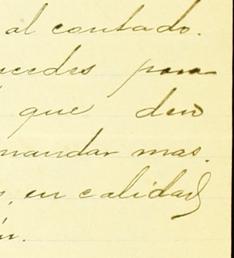 al contado.
para
que den
mandar mas.
en calidad